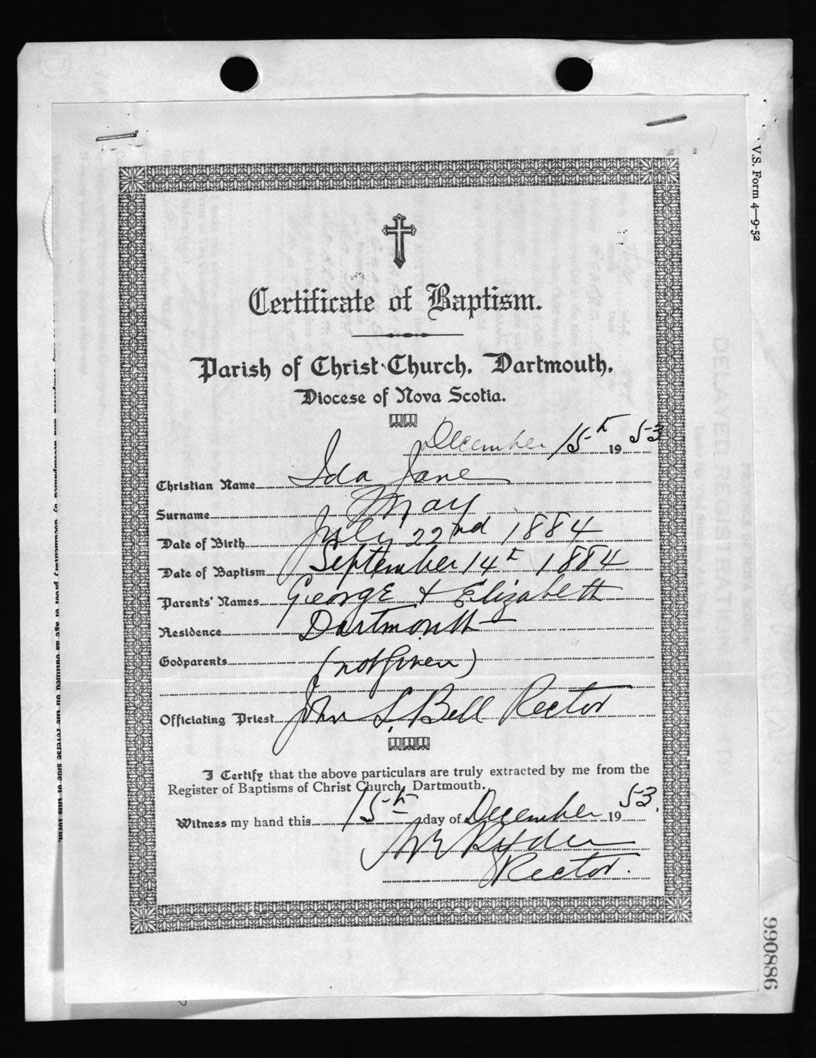 V.S. Form 4—9-52
Certificate of Baptism.
Parish of Christ Church, Dartmouth,
Diocese of Nova Scotia.
December 15th 1953
Christian Name Ida Jane
Surname May
Date of Birth July 22nd 1884
Date of Baptism September 14t 1884
Parents' Names George & Elizabeth
Residence Dartmouth
Godparents (not given)
Officiating Priest John L. Bell Rector
I Certify that the above particulars are truly extracted by me from the
Register of Baptisms of Christ Church, Dartmouth.
Witness my hand this 15th day of December 1953.
Ryder
Rector.
990886